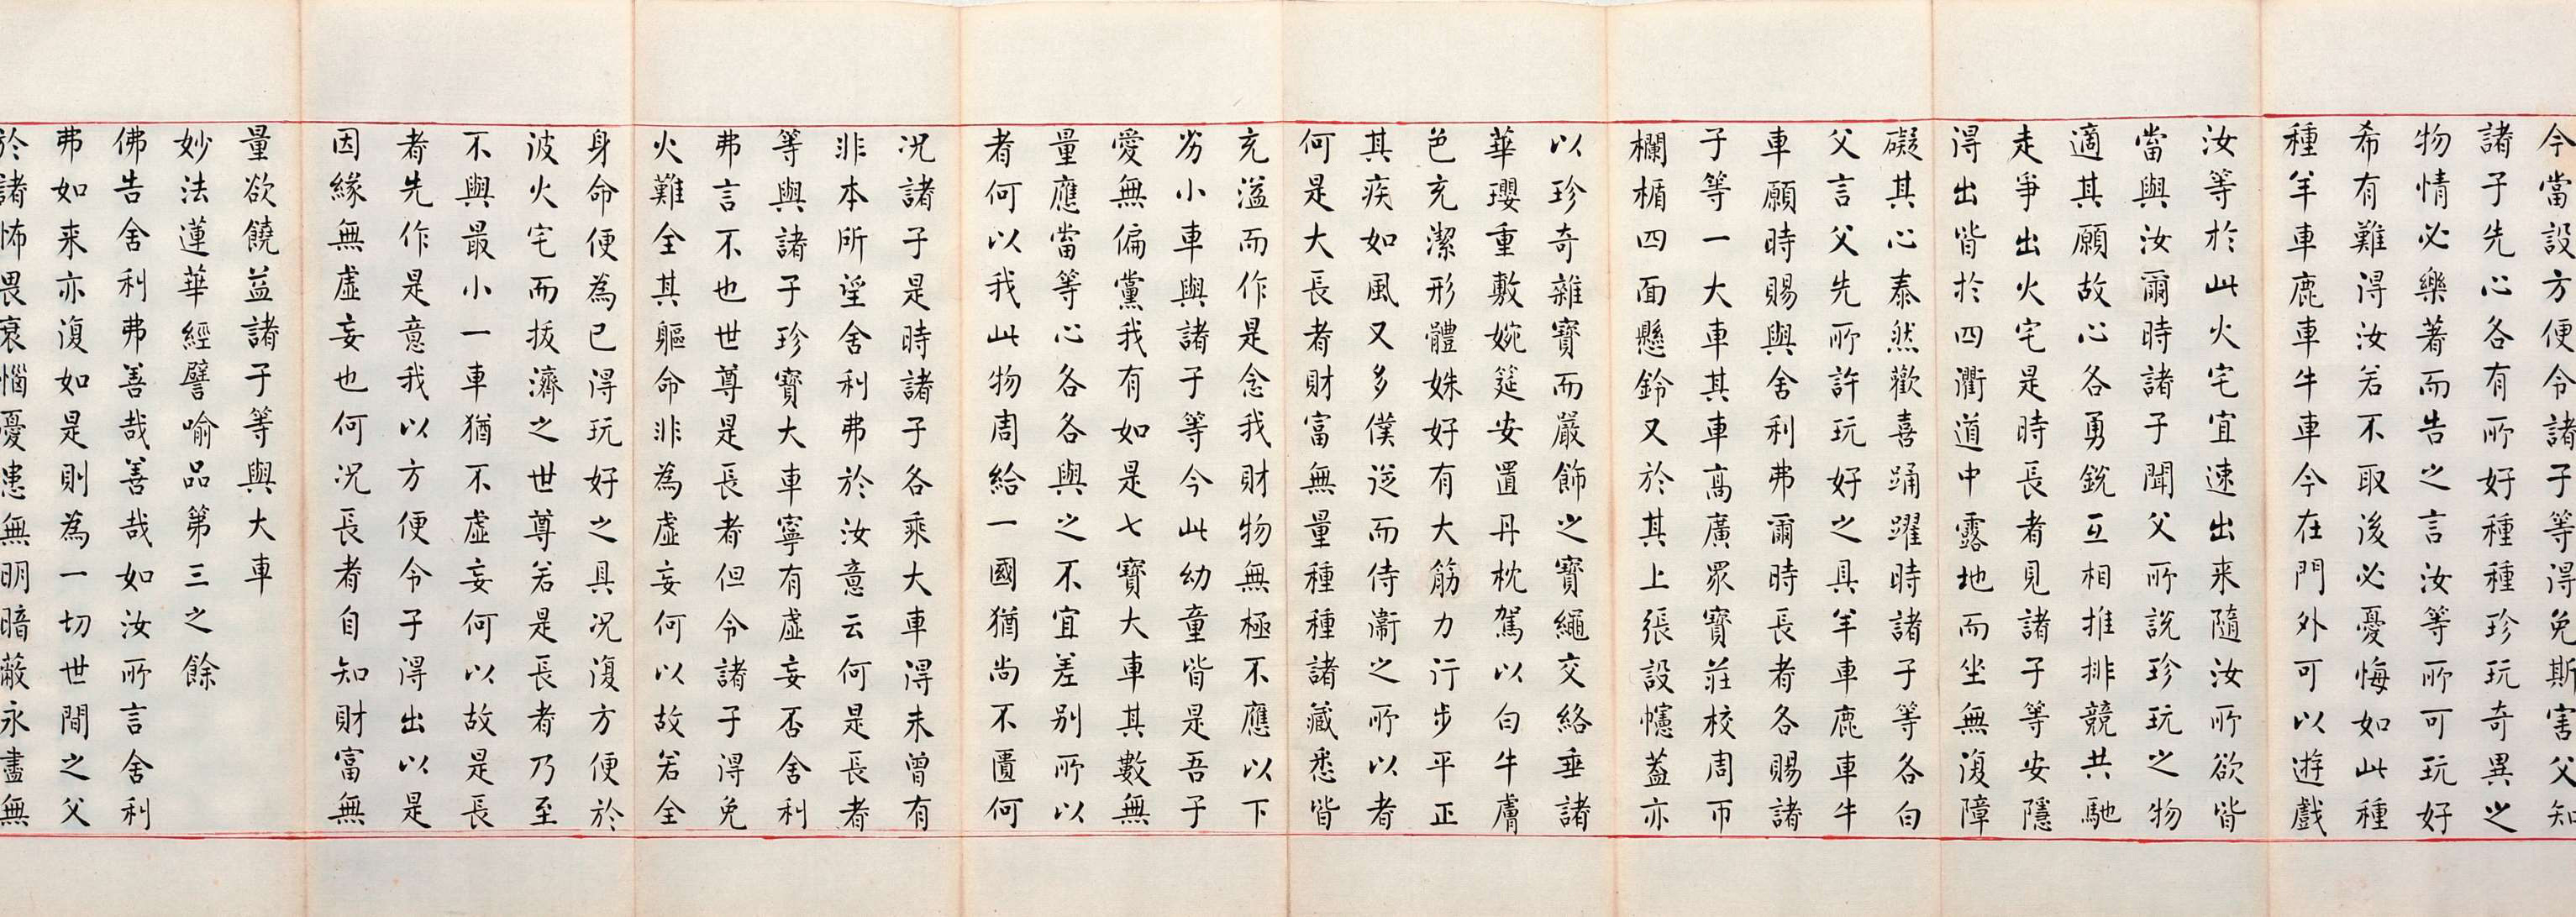 今當設方便令諸子等得免斯害父知
諸子先心各有所好種種珍玩奇異之
物情必樂著而告之言汝等所可玩好
希有難得汝若不取後必憂悔如此種
種羊車鹿車牛車今在門外可以遊戲
汝等於此火宅宜速出来隨汝所欲皆
當與汝爾時諸子聞父所說珍玩之物
適其願故心各勇銳互相推排競共馳
走爭出火宅是時長者見諸子等安隱
得出皆於四衢道中露地而坐無復障
礙其心泰然歡喜踊躍時諸子等各白
父言父先所許玩好之具羊車鹿車牛
車願時賜與舍利弗爾時長者各賜諸
子等一大車其車高廣眾寶莊校周帀
欄楯四面懸鈴又於其上張設幰蓋亦
以珍奇雜寶而嚴飾之寶繩交絡垂諸
華瓔重敷婉筵安置丹枕駕以白牛膚
色充潔形體姝好有大筋力行步平正
其疾如風又多僕從而侍衞之所以者
何是大長者財富無量種種諸藏悉皆
充溢而作是念我財物無極不應以下
劣小車與諸子等今此幼童皆是吾子
愛無偏黨我有如是七寶大車其數無
量應當等心各各與之不宜差别所以
者何以我此物周給一國猶尚不匱何
况諸子是時諸子各乘大車得未曾有
非本所望舍利弗於汝意云何是長者
等與諸子珍寶大車寧有虛妄否舍利
弗言不也世尊是長者但令諸子得免
火難全其軀命非為虛妄何以故若全
身命便為已得玩好之具况復方便於
彼火宅而拔濟之世尊若是長者乃至
不與最小一車猶不虛妄何以故是長
者先作是意我以方便令子得出以是
因緣無虛妄也何况長者自知財富無
量欲饒益諸子等與大車
妙法蓮華經譬喻品第三之餘
佛告舍利弗善哉善哉如汝所言舍利
弗如来亦復如是則為一切世間之父
於諸怖畏衰惱憂患無明暗蔽永盡無